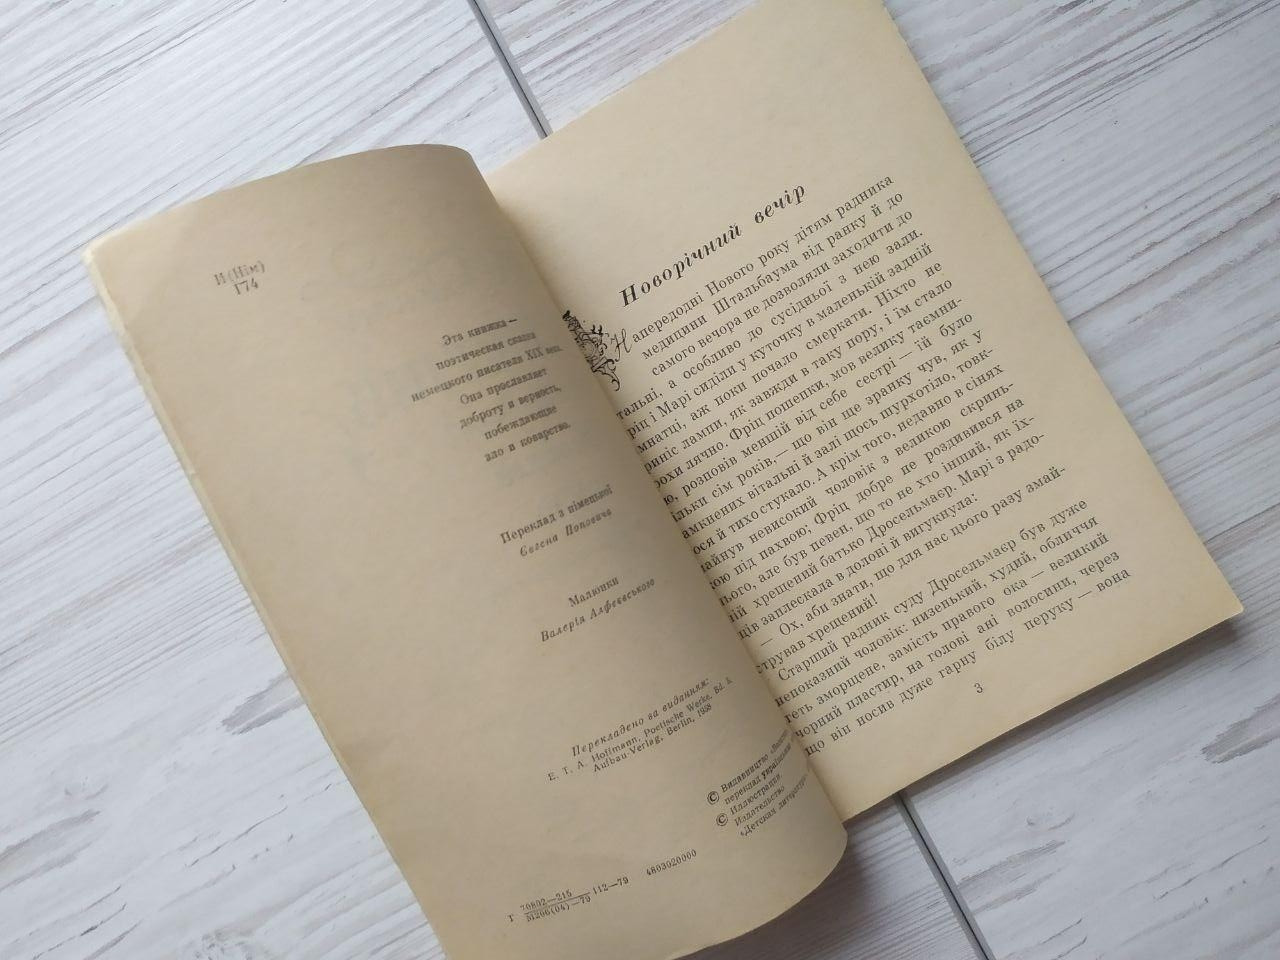 И(Нім)
Г74
Эта книжка —
поэтическая сказка
немецкого писателя XIX века.
Она прославляет
доброту и верность,
побеждающие
зло и коварство.
Переклад з німецької
Євгена Поповича
Малюнки
Валерія Алфеєвського
Перекладено за виданням:
E. T. A. Hoffmann, Poetische Werke, Bd.
Aufbau-Verlag, Berlin, 1958
© Видавництво
переклад
© Иллюстрации.
Издательство
«Детская литература»
Г 70802—215
М206(04)—79 112—79 4803020000
Новорічний вечір
Напередодні Нового року дітям радника
медицини Штальбаума від ранку й до
самого вечора не дозволяли заходити до
тальні, а особливо до сусідньої з нею зали.
ріц і Марі сиділи у куточку в маленькій задній
мнатці, аж поки почало смеркати. Ніхто не
риніс лампи, як завжди в таку пору, і їм стало
рохи лячно. Фріц пошепки, мов велику таємни-
ю, розповів меншій від себе сестрі — їй було
льки сім років,— що він ще зранку чув, як у
амкнених вітальні й залі щось шурхотіло, товк-
ося й тихо стукало. А крім того, недавно в сінях
айнув невисокий чоловік з великою скринь-
ою під пахвою; Фріц добре не роздивився на
ього, але був певен, що то не хто інший, як їх-
ій хрещений батько Дросельмаєр. Марі з радо-
ців заплескала в долоні й вигукнула:
— Ох, аби знати, що для нас цього разу змай-
стрував хрещений!
Старший радник суду Дросельмаєр був дуже
непоказний чоловік: низенький, худий, обличчя
геть зморщене, замість правого ока — великий
чорний пластир, на голові ані волосини, через
що він носив дуже гарну білу перуку — вона
3